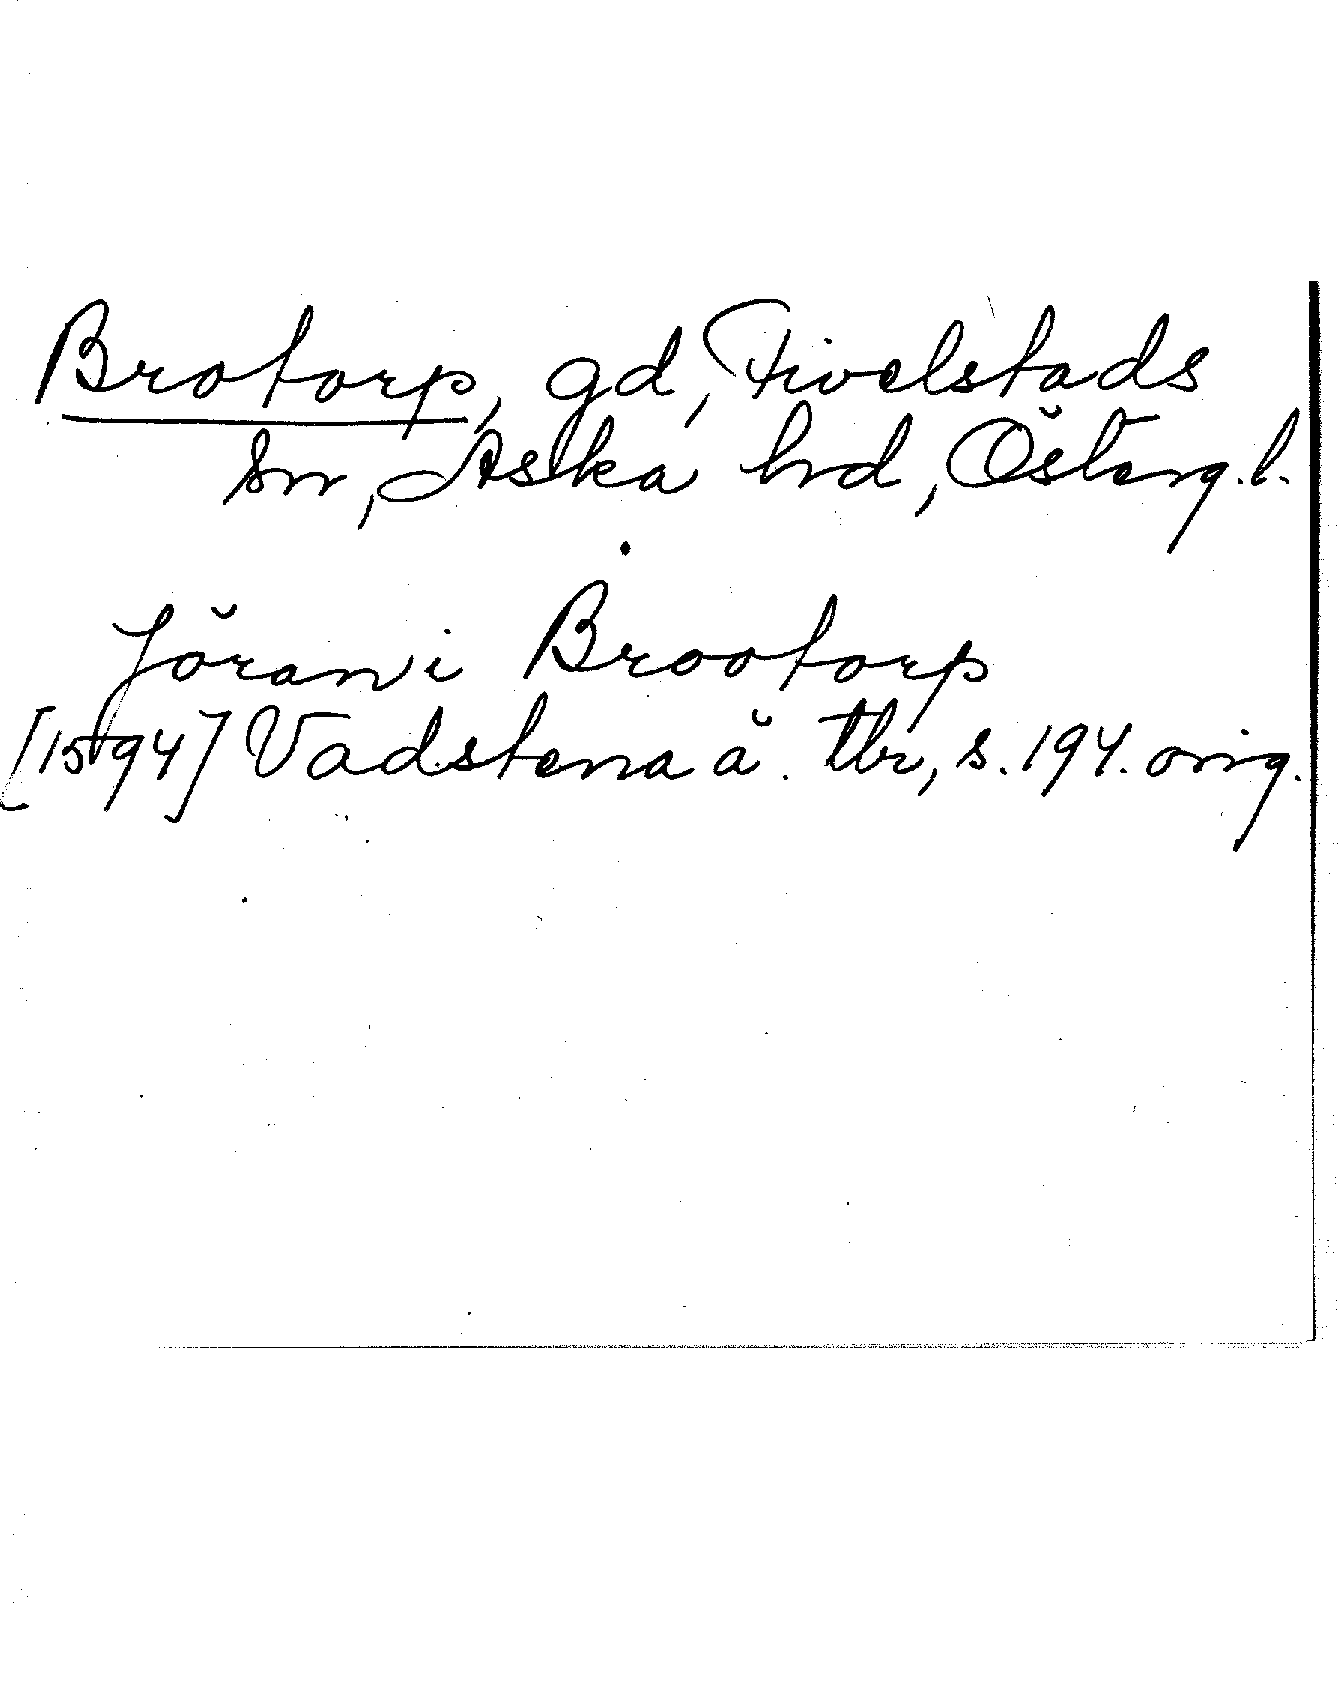 Brotorp, gd, Fivelstads
sn, Aska hd, Österg.l.
Jöran i Brootorp
[1594] Vadstena ä. tbr, s. 194. orig.